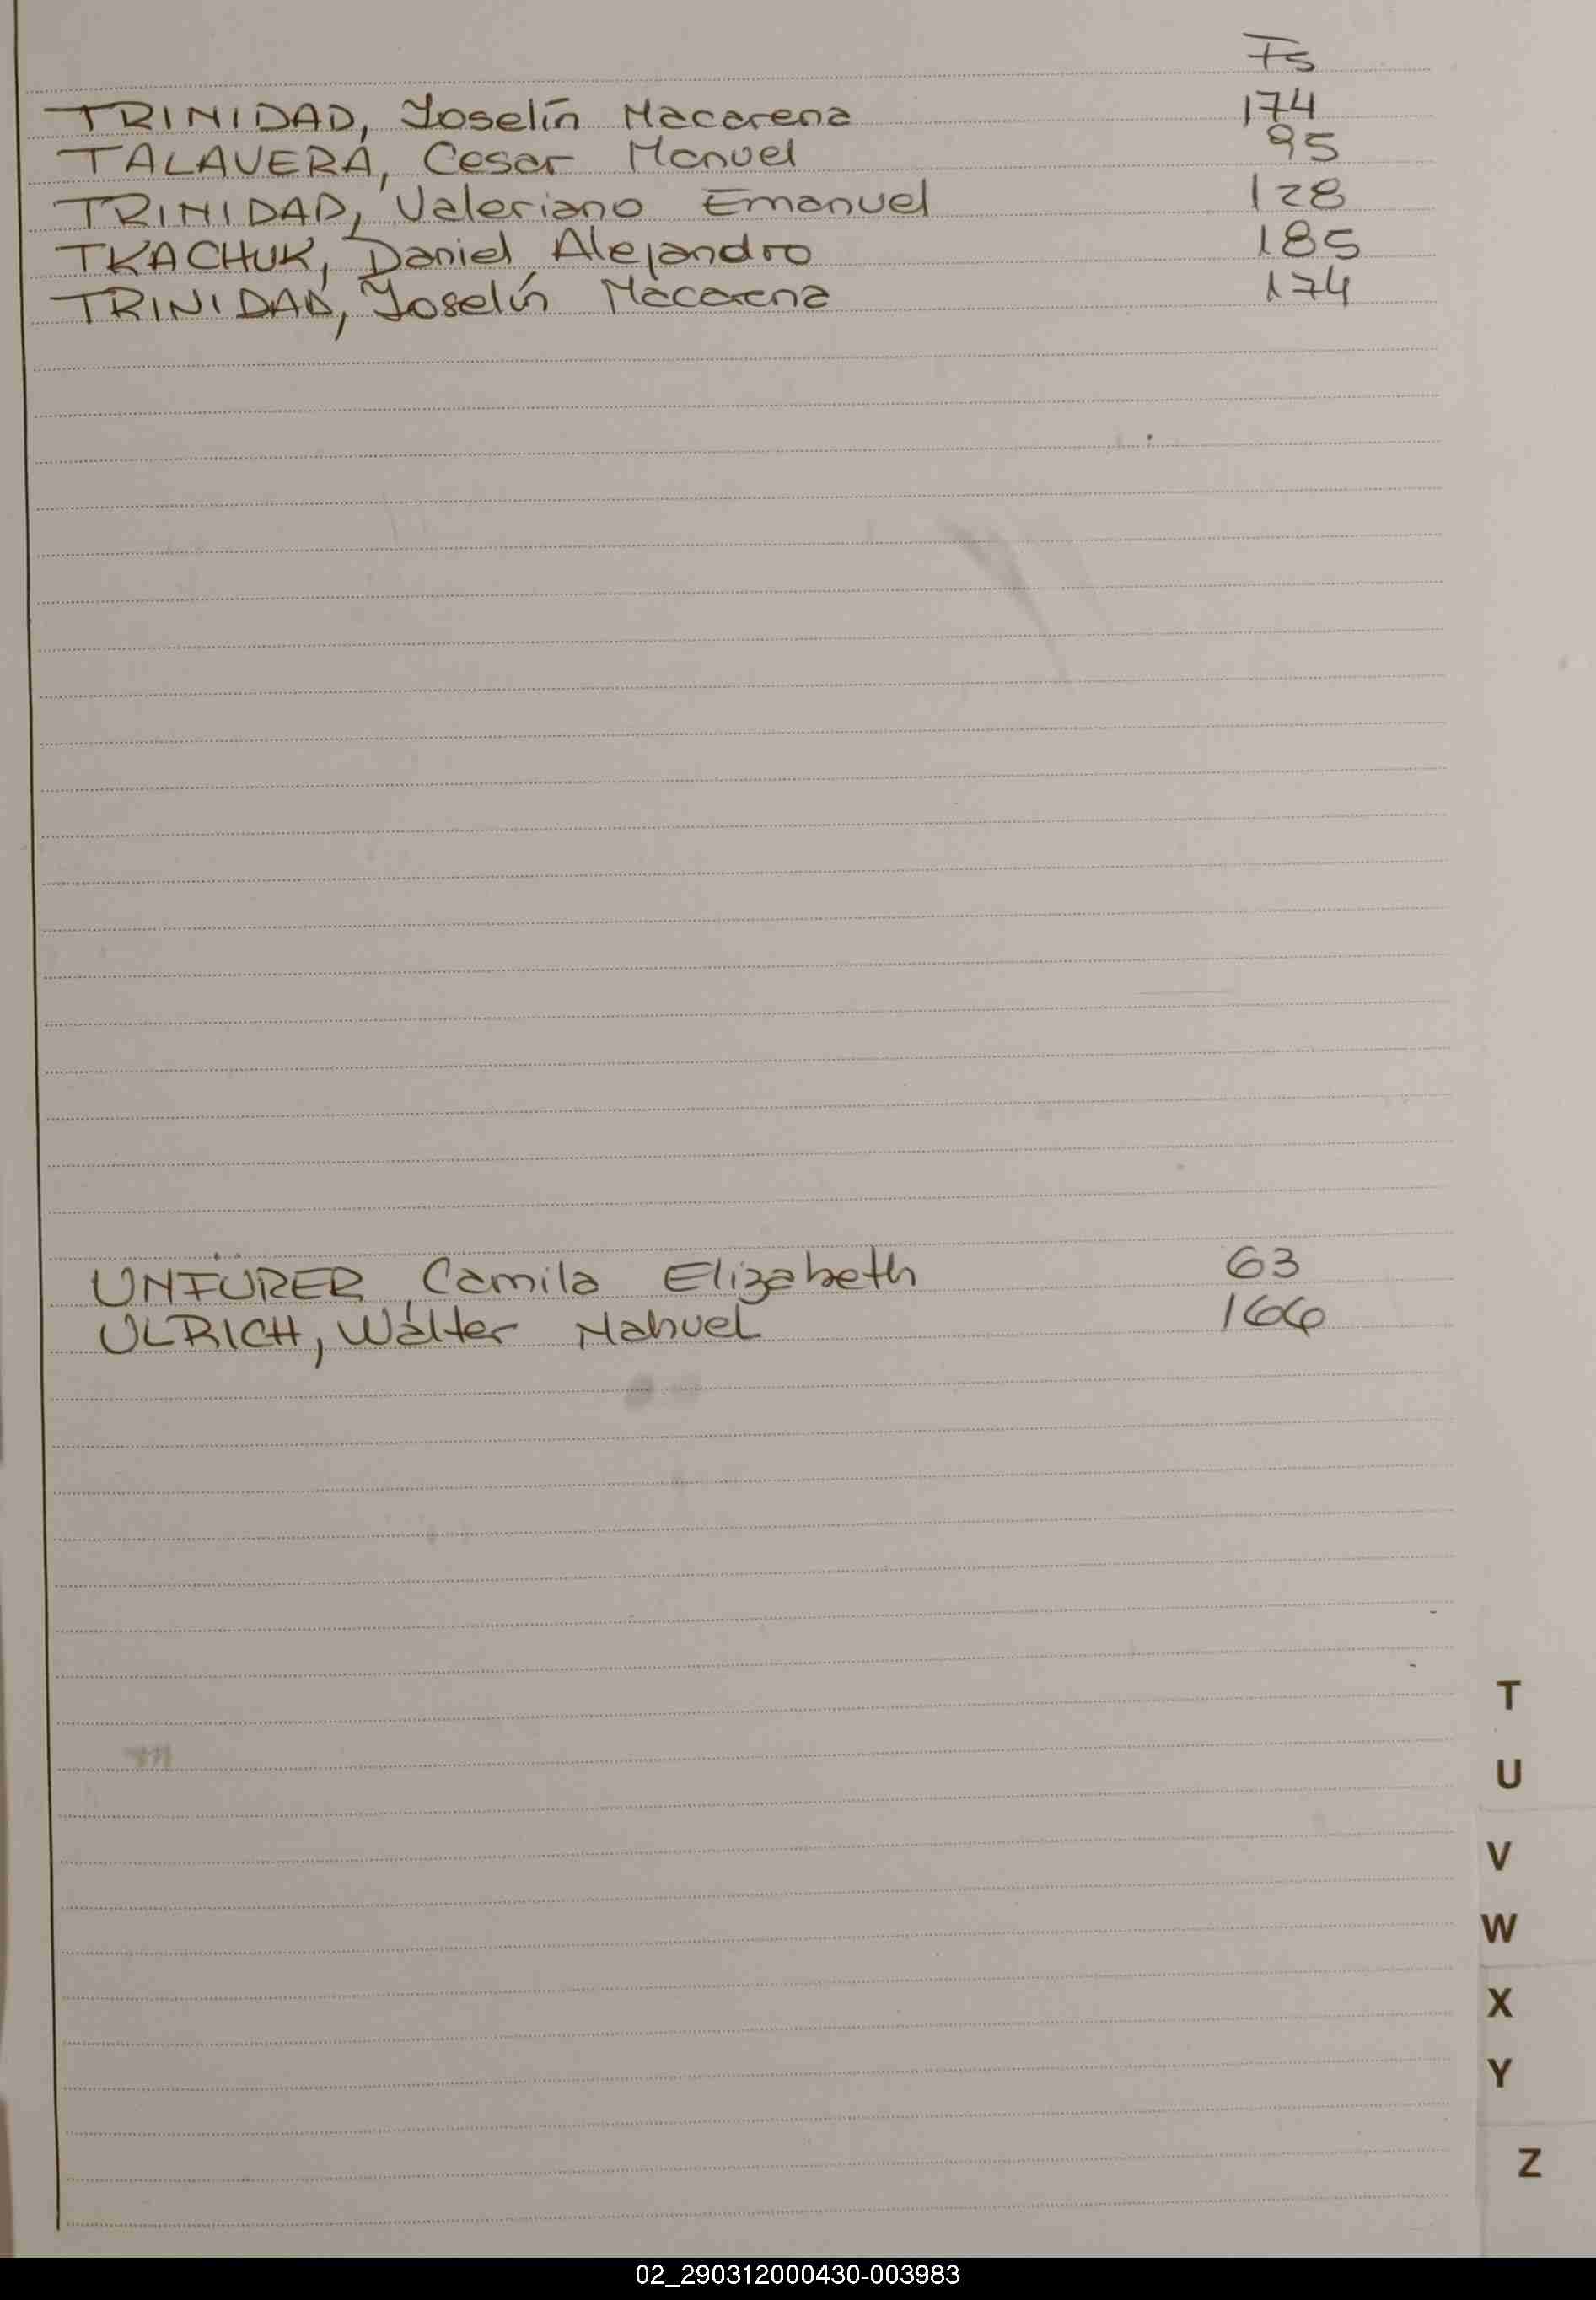 Fs
TRINIDAD, Yoselín Macarena 174
TALAVERA, Cesar Manuel 95
TRINIDAD, Valeriano Emanuel 128
TKACHUK, Daniel Alejandro 185
TRINIDAD, Yoselín Macarena 174
UNFÜRER, Camila Elizabeth 63
ULRICH, Walter Nahuel 166
T
U
V
W
X
Y
Z
02_290312000430-003983